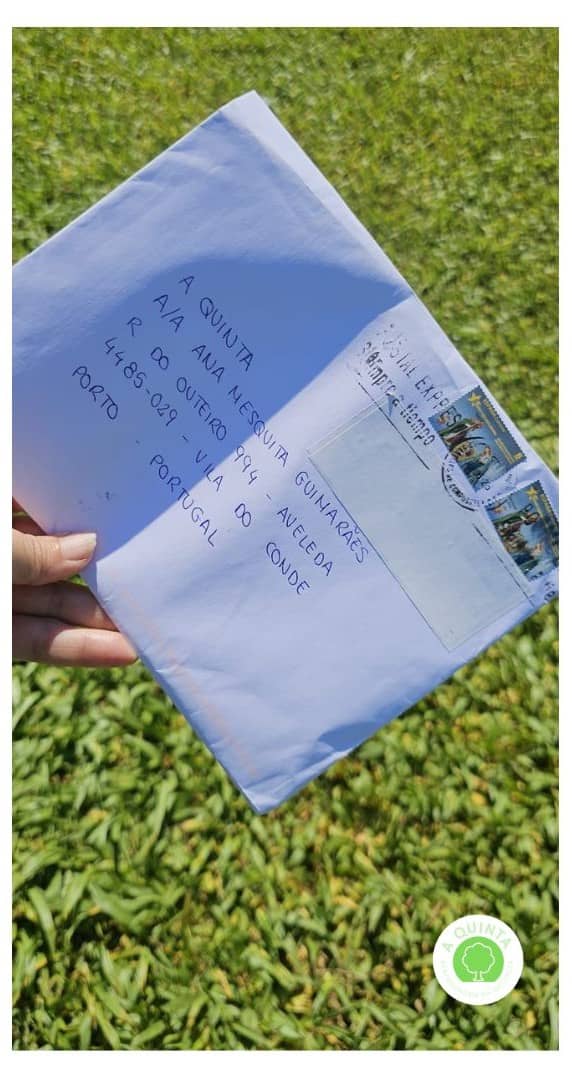 A QUINTA
A/A ANA MESQUITA GUIMARÃES
R DO OUTEIRO 994 - AVELEDA
4485-029 - VILA DO CONDE
PORTO - PORTUGAL
POSTAL EXPRES
siempre a tiempo
A QUINTA